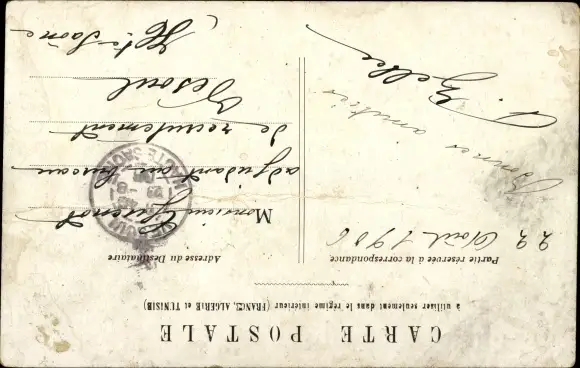 CARTE POSTALE
à utiliser seulement dans le régime intérieur (FRANCE, ALGÉRIE et TUNISIE)
Partie réservée à la correspondance
22 Août 1906
Bonnes amitiés
Adresse du Destinataire
Monsieur
adjudant au bureau
de recrutement
Vesoul
Hte Saône
HAUTE SAONE